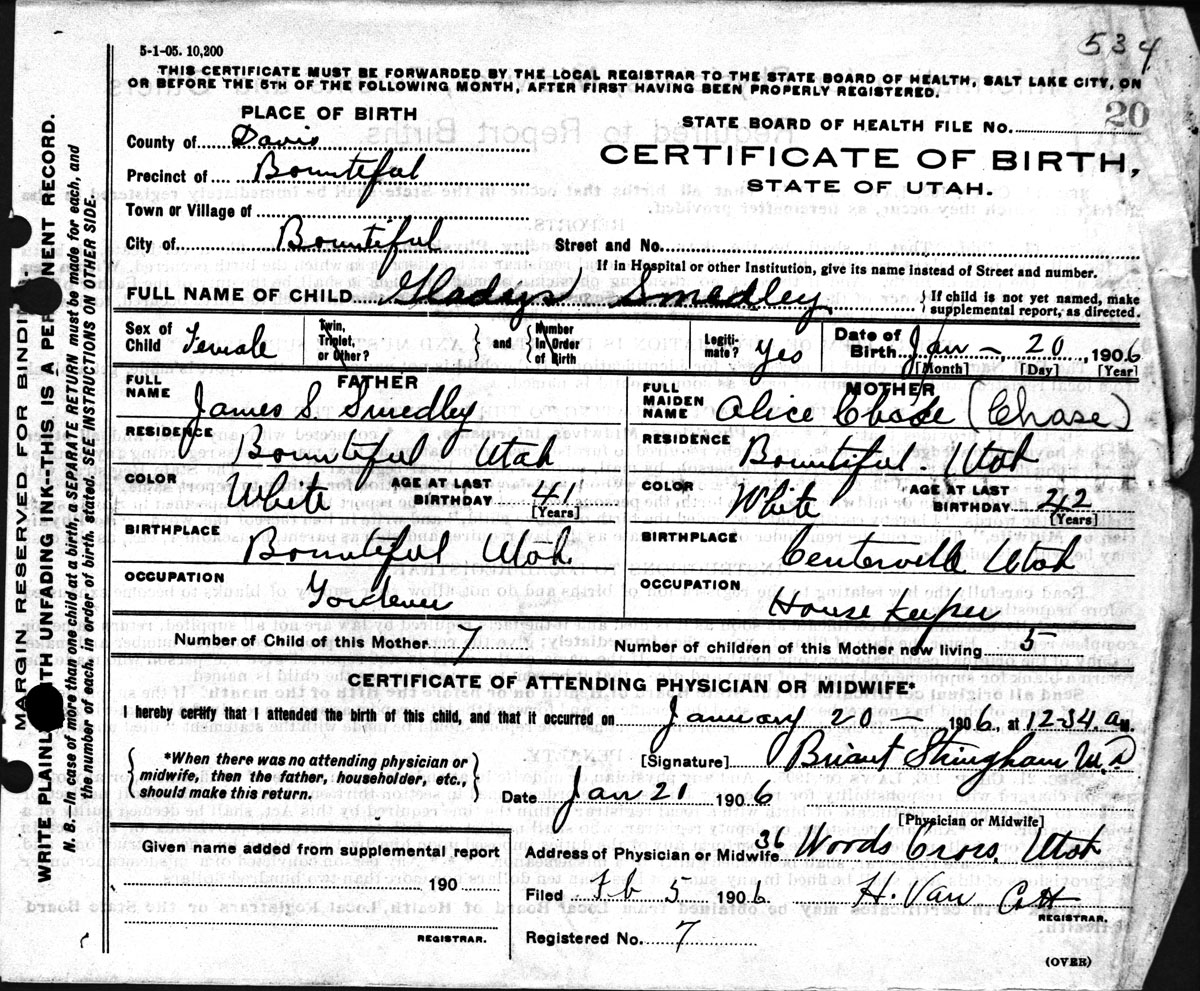 534
5-1-05. 10,200
THIS CERTIFICATE MUST BE FORWARDED BY THE LOCAL REGISTRAR TO THE STATE BOARD OF HEALTH, SALT LAKE CITY, ON
OR BEFORE THE 5TH OF THE FOLLOWING MONTH, AFTER FIRST HAVING BEEN PROPERLY REGISTERED.
PLACE OF BIRTH
County of Davis
Precinct of Bountiful
Town or Village of
City of Bountiful
STATE BOARD OF HEALTH FILE No. 20
CERTIFICATE OF BIRTH,
STATE OF UTAH.
Street and No.
If in Hospital or other Institution, give its name instead of Street and number.
FULL NAME OF CHILD Gladys Smedley { If child is not yet named, make supplemental report, as directed.
Sex of Child Female
Twin, Triplet, or Other? } and { Number In Order of Birth
Legitimate? Yes
Date of Birth Jan - , 20 , 1906
[Month] [Day] [Year]
FATHER
FULL NAME James S Smedley
RESIDENCE Bountiful Utah
COLOR White AGE AT LAST BIRTHDAY 41
[Years]
BIRTHPLACE Bountiful Utah.
OCCUPATION
MOTHER
FULL MAIDEN NAME Alice Chase (Chase)
RESIDENCE Bountiful. Utah
COLOR White AGE AT LAST BIRTHDAY 42
[Years]
BIRTHPLACE Centerville Utah
OCCUPATION House Keeper
Number of Child of this Mother 7
Number of children of this Mother now living 5
CERTIFICATE OF ATTENDING PHYSICIAN OR MIDWIFE.
I hereby certify that I attended the birth of this child, and that it occurred on January 20 - 1906, at 12-34. a M.
{ *When there was no attending physician or midwife, then the father, householder, etc., should make this return. }
[Signature] Briant Stringham M.D
Date Jan 20 1906
[Physician or Midwife]
Given name added from supplemental report
190
REGISTRAR.
Address of Physician or Midwife 36 Woods Cross. Utah
Filed Feb 5 1906 H. Van
REGISTRAR.
Registered No. 7
(OVER)
MARGIN RESERVED FOR BINDING
WRITE PLAINLY WITH UNFADING INK--THIS IS A PERMANENT RECORD.
N. B.--In case of more than one child at a birth, a SEPARATE RETURN must be made for each, and
the number of each, in order of birth, stated. SEE INSTRUCTIONS ON OTHER SIDE.